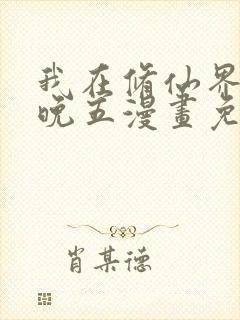 我在脩仙界
晚五漫畫免
肖某德